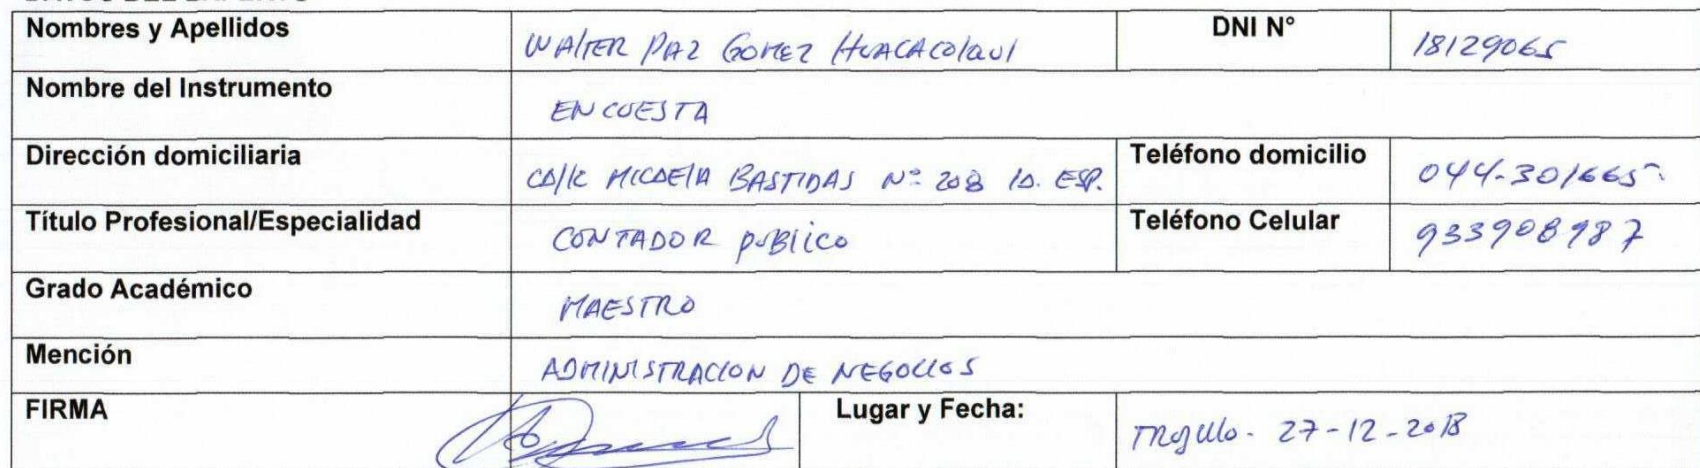 Nombres y Apellidos WALTER PAZ GOMEZ HUACACOLQUI DNI N° 18129065
Nombre del Instrumento ENCUESTA
Dirección domiciliaria CALLE MICAELA BASTIDAS N° 208 ESP. Teléfono domicilio 044-301665
Título Profesional/Especialidad CONTADOR PUBLICO Teléfono Celular 933908987
Grado Académico MAESTRO
Mención ADMINISTRACION DE NEGOCIOS
FIRMA Lugar y Fecha: TRUJILLO - 27-12-2018